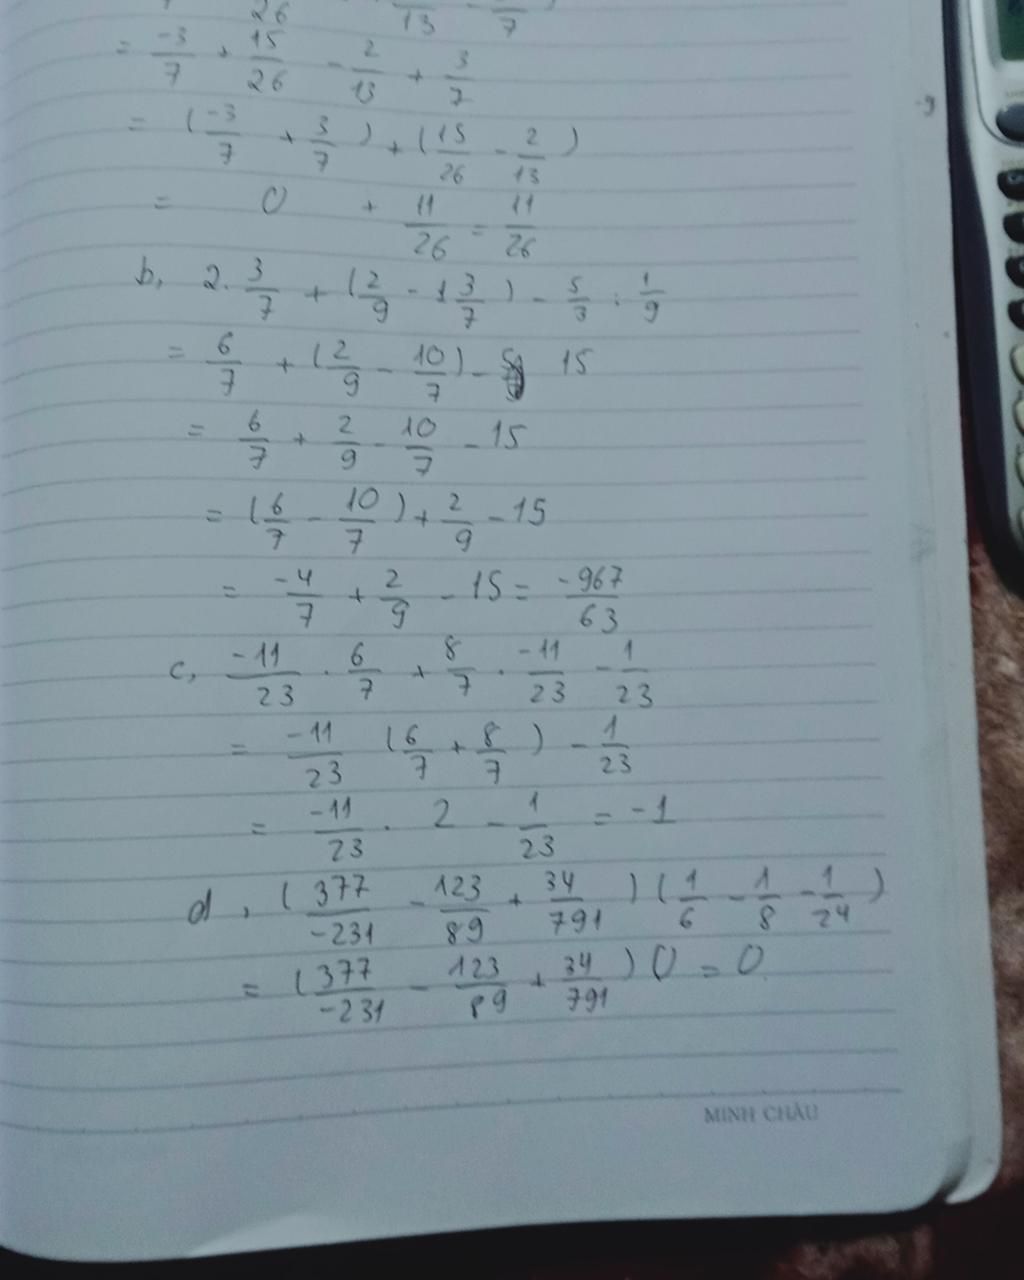 26 13 7
= -3/7 + 15/26 - 2/13 + 3/7
= (-3/7 + 3/7) + (15/26 - 2/13)
= 0 + 11/26 = 11/26
b, 2. 3/7 + (2/9 - 1 3/7) - 5/3 : 1/9
= 6/7 + (2/9 - 10/7) - 15
= 6/7 + 2/9 - 10/7 - 15
= (6/7 - 10/7) + 2/9 - 15
= -4/7 + 2/9 - 15 = -967/63
c, -11/23 . 6/7 + 8/7 . -11/23 - 1/23
= -11/23 (6/7 + 8/7) - 1/23
= -11/23 . 2 - 1/23 = -1
d, (377/-231 - 123/89 + 34/791) (1/6 - 1/8 - 1/24)
= (377/-231 - 123/89 + 34/791) 0 = 0
MINH CHÂU